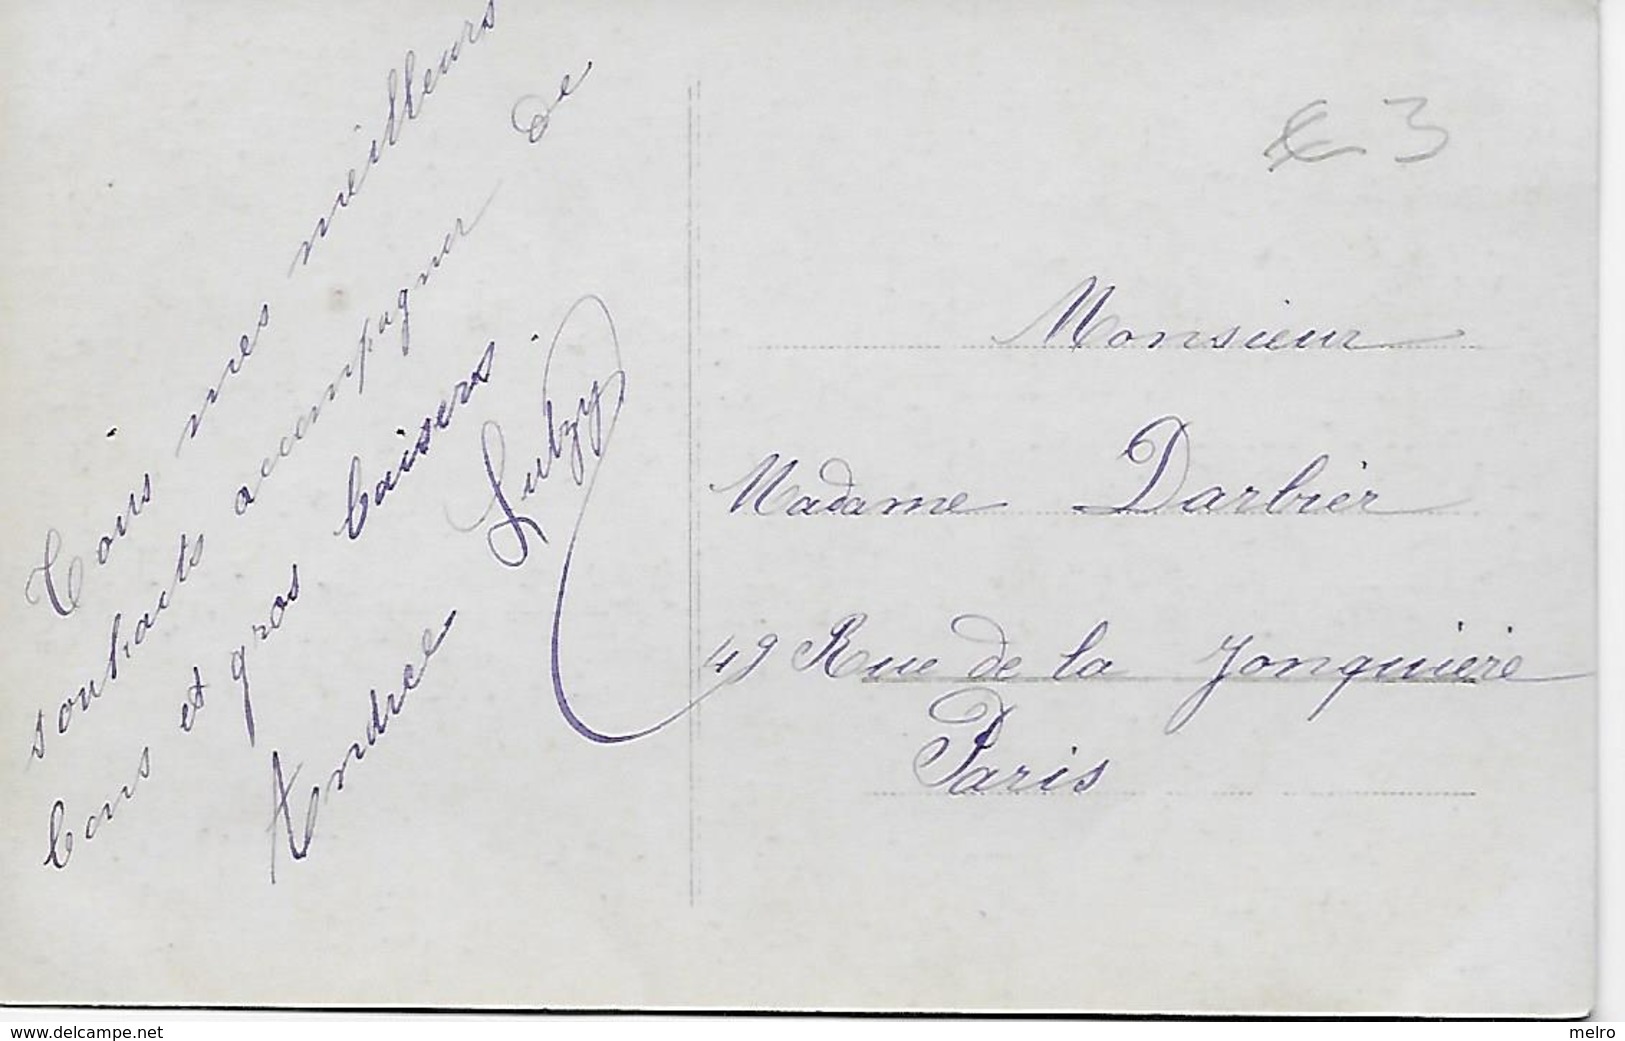 Tous mes meilleurs
souhaits accompagner de
bons et gros baisers.
Andrée Lubzy
3
Monsieur
Madame Darbier
49 Rue de la Jonquière
Paris
www.delcampe.net
melro